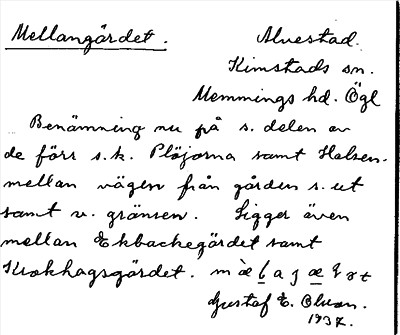 Mellangärdet. Alvestad.
Kimstads sn.
Memmings hd. Ögl
Benämning nu på s. delen av
de förr s.k. Plöjorna samt Halsen.
mellan vägen från gården s. ut
samt v. gränsen. Ligger även
mellan Ekbackegärdet samt
Krokhagsgärdet.
Gustaf E. Olsson.
1937.